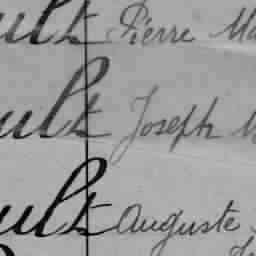 ult Pierre Ma
ult Joseph
ult Auguste